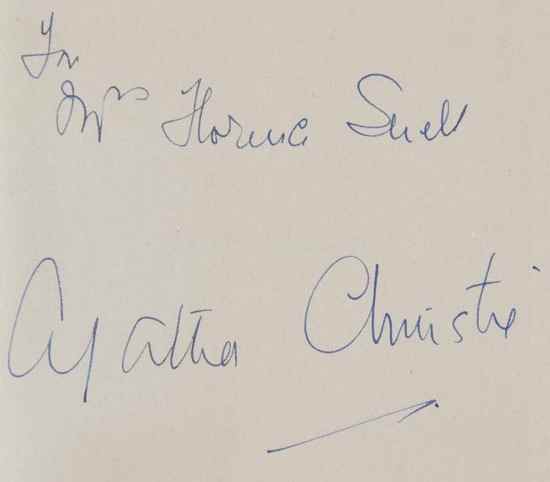 To
Mrs Florence Snell
Agatha Christie